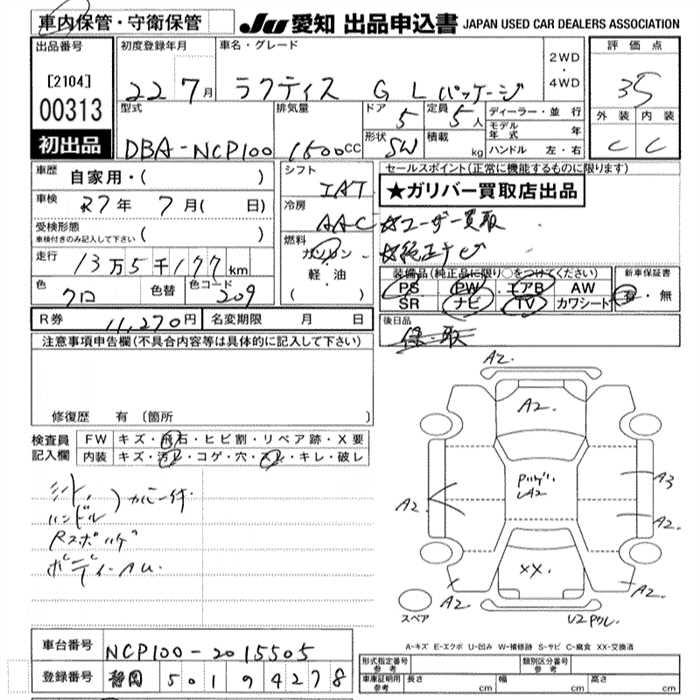 車内保管・守衛保管
JU 愛知 出品申込書 JAPAN USED CAR DEALERS ASSOCIATION
出品番号
[2104]
00313
初出品
初度登録年月
22 7月
車名・グレード
ラクティス G Lパッケージ
2WD
・
4WD
評価点
35
外装 内装
C C
型式
DBA-NCP100
排気量
1500cc
ドア
5
定員
5人
形状
SW
積載
kg
ディーラー・並行
モデル年式 年
ハンドル 左・右
車歴
自家用・( )
車検
27年 7月( 日)
受検形態
車検付きのみ記入して下さい ( )
走行
13万5千177km
色
クロ
色替
色コード
209
シフト
IAT
冷房
AAC
燃料
ガソリン
軽・油
( )
セールスポイント(正常に機能するものに限ります)
★ガリバー買取店出品
☆ユーザー買取
☆純正ナビ
装備品(純正品に限り○をつけてください)
PS PW エアB AW
SR ナビ TV カワシート
新車保証書
有・無
後日品
保・取
R券 11,270円
名変期限 月 日
注意事項申告欄(不具合内容等は具体的に記入して下さい)
修復歴 有 〔箇所 〕
検査員
記入欄
FW キズ・飛石・ヒビ割・リペア跡・X要
内装 キズ・汚レ・コゲ・穴・スレ・キレ・破レ
シート,
ハンドル
ボディーAU.
A2.
A2.
A2.
A3
A2.
XX.
A2.
A2.
スペア
A-キズ E-エクボ U-凹み W-補修跡 S-サビ C-腐食 XX-交換済
車台番号
NCP100-2015505
登録番号
静岡 501 9 4278
形式指定番号
参考
類別区分番号
参考
車庫証明用
参考
長さ cm 幅 cm 高さ cm